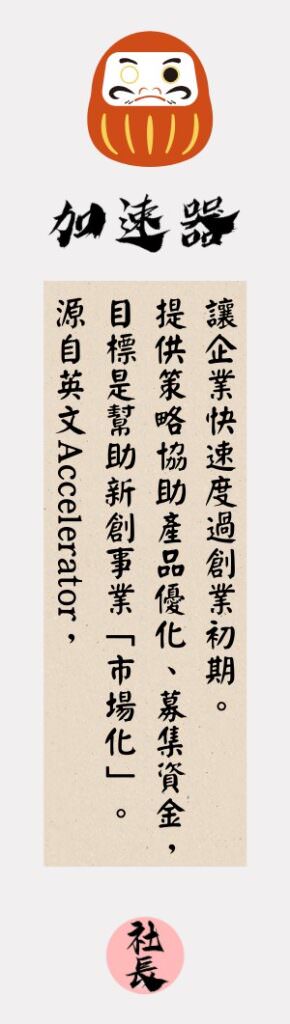 加速器
源自英文Accelerator，
目標是幫助新創事業「市場化」。
提供策略協助產品優化、募集資金，
讓企業快速度過創業初期。
社長